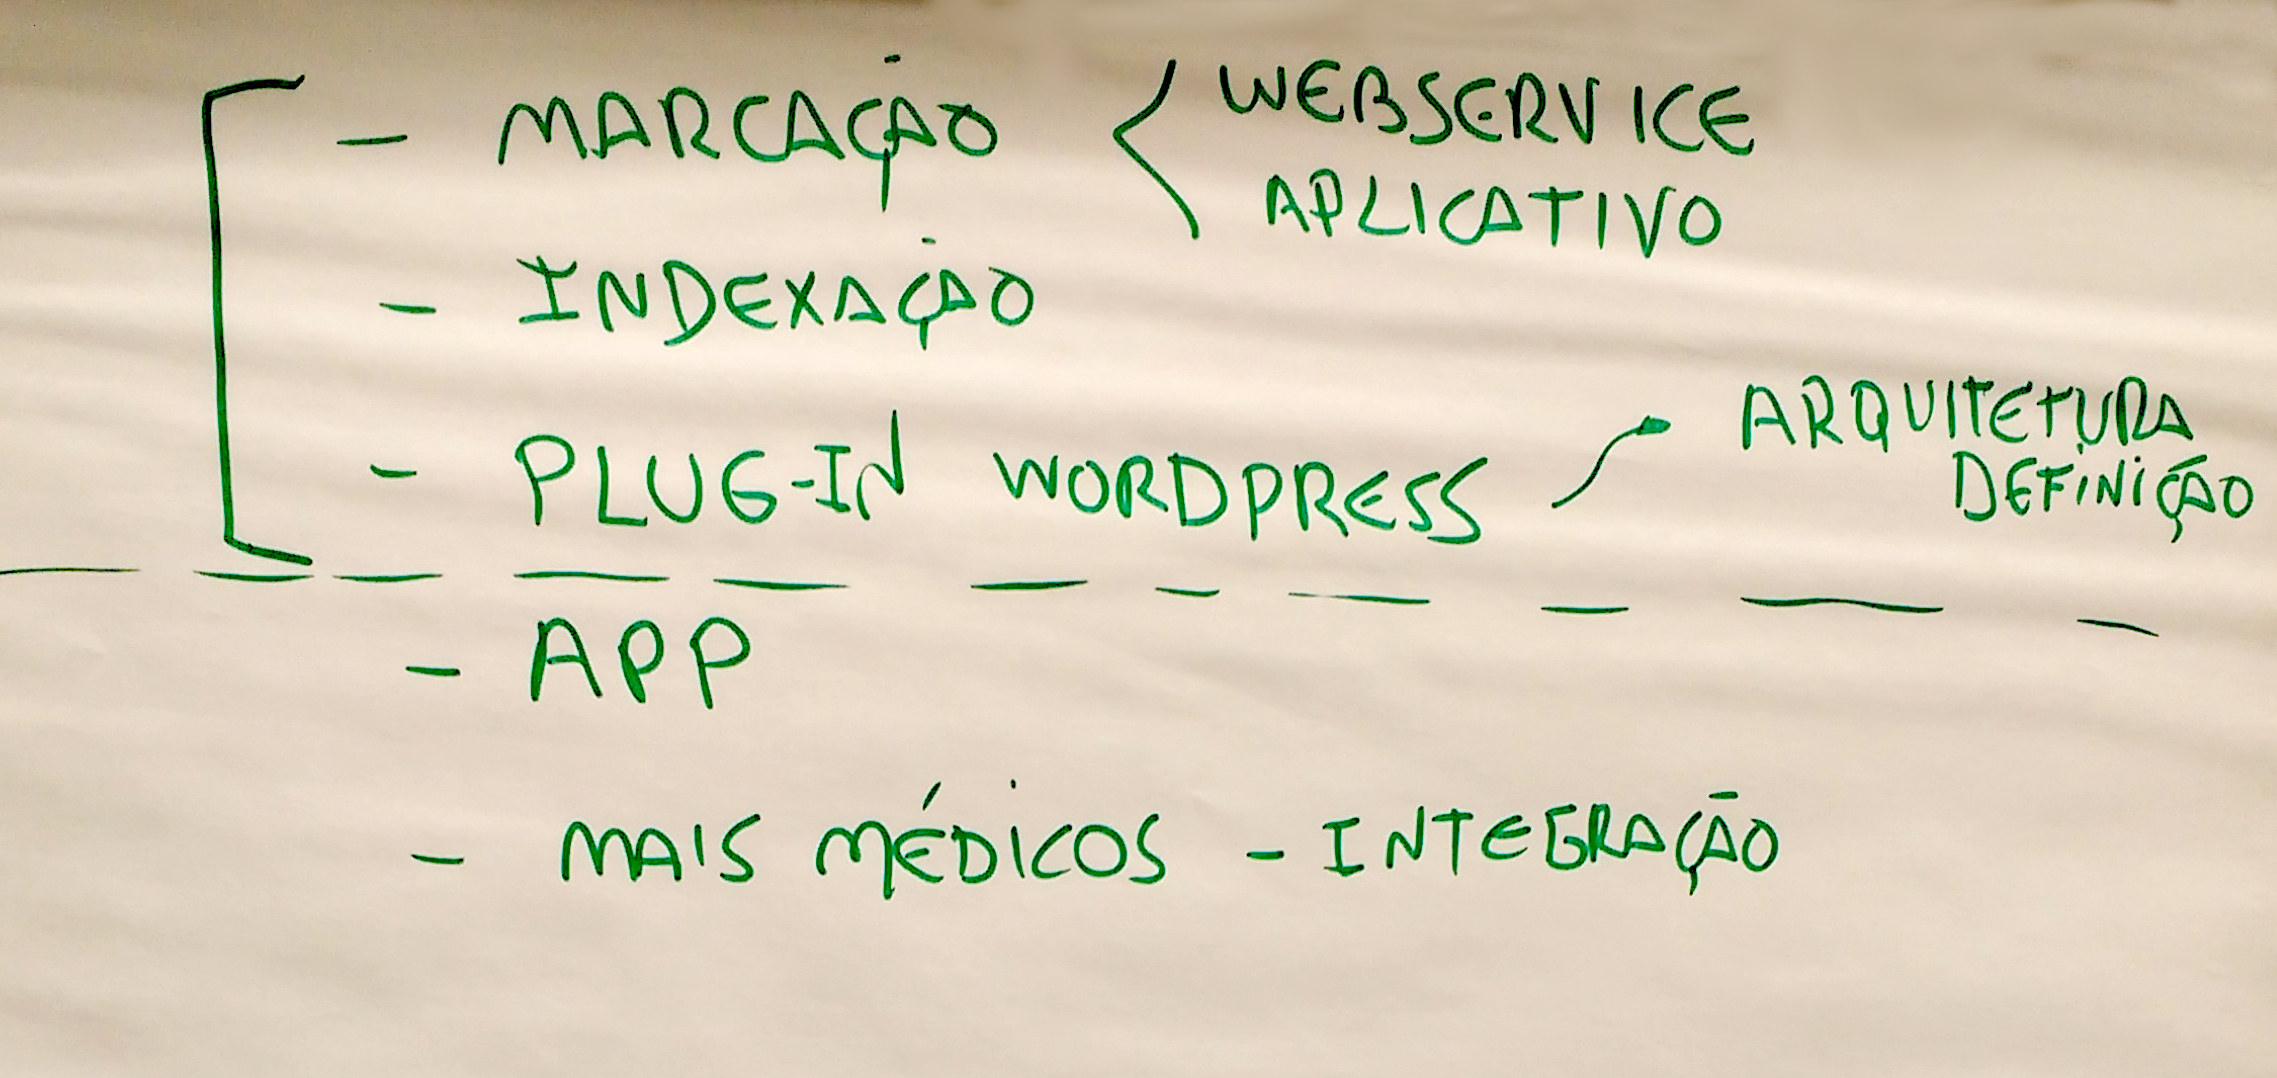 - MARCAÇÃO < WEBSERVICE
APLICATIVO
- INDEXAÇÃO
- PLUG-IN WORDPRESS ARQUITETURA
DEFINIÇÃO
- APP
- MAIS MÉDICOS - INTEGRAÇÃO